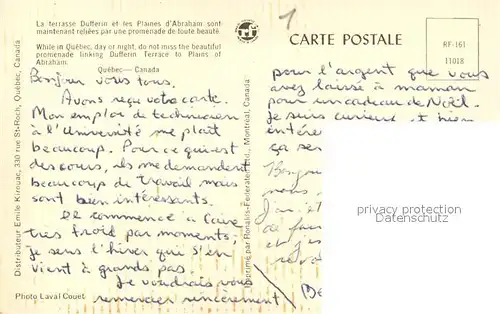 La terrasse Dufferin et les Plaines d'Abraham sont
maintenant reliées par une promenade de toute beauté.
While in Québec, day or night, do not miss the beautiful
promenade linking Dufferin Terrace to Plains of
Abraham.
Québec—Canada
1
CARTE POSTALE
RF-161
11018
Bonjour vous tous,
Avons reçu votre carte.
Mon emploi de technicien
à l'Université me plait
beaucoup. Pour ce qui est
des cours, ils me demandent
beaucoup de travail mais
sont bien intéressants.
Il commence à faire
très froid par moments,
je sens l'hiver qui s'en
vient à grands pas.
Je voudrais vous
remercier sincèrement
pour l'argent que vous
avez laissé à maman
pour un cadeau de Noël.
Je suis curieux et bien
ça se
Bonjou
nous
J'ai
de
et
Be
Distributeur Emile Kirouac, 330 rue St-Roch, Québec, Canada
Imprimé par Ronalds-Federated Ltd., Montréal, Canada
Photo Laval Couet
posterlounge